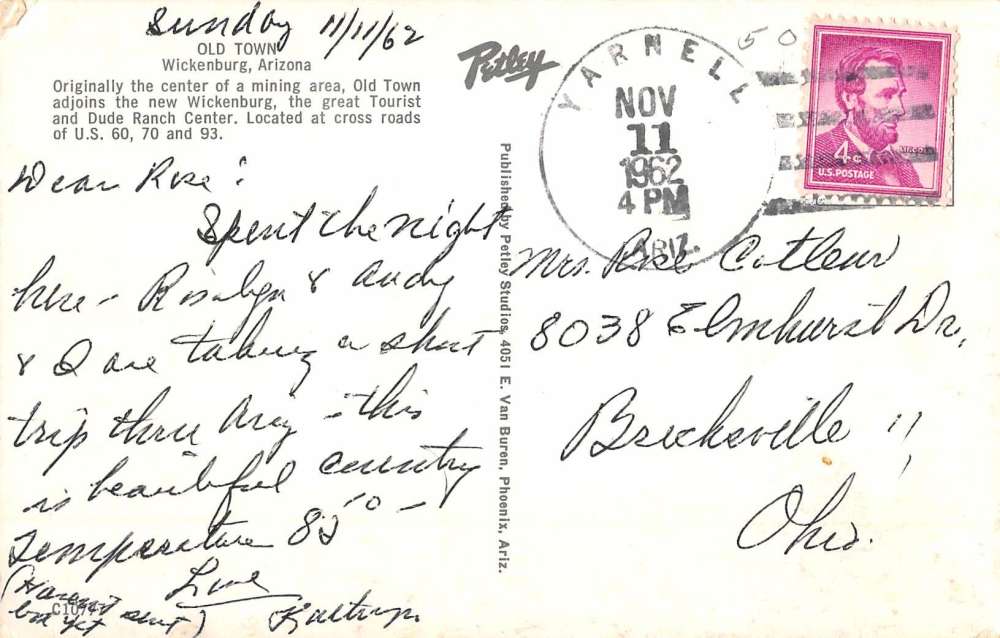 Sunday 11/11/62
OLD TOWN
Wickenburg, Arizona
Originally the center of a mining area, Old Town
adjoins the new Wickenburg, the great Tourist
and Dude Ranch Center. Located at cross roads
of U.S. 60, 70 and 93.
Dear Rose:
Spent the night
here - Rosalyn & Andy
& I are taking a short
trip thru Ariz - this
is beautiful country
Temperature 85° -
Love
(Haven't
sent)
C10747
Petley
Published by Petley Studios, 4051 E. Van Buren, Phoenix, Ariz.
YARNELL
NOV
11
1962
4 PM
ARIZ.
50
LINCOLN
4¢
U.S. POSTAGE
Mrs. Rose
8038 Elmhurst Dr,
Brecksville
Ohio.